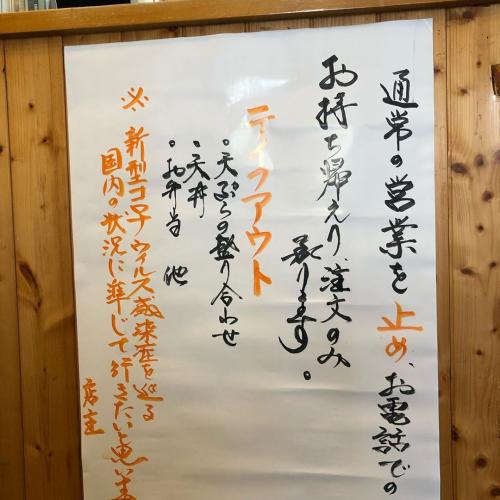 通常の営業を止め、お電話での
お持ち帰えり、注文のみ
承ります。
テイクアウト
。天ぷらの盛り合わせ
。天丼
。お弁当 他
※ 新型コロナウィルス感染症を巡る
国内の状況に準じて行きたいと思いま
店主